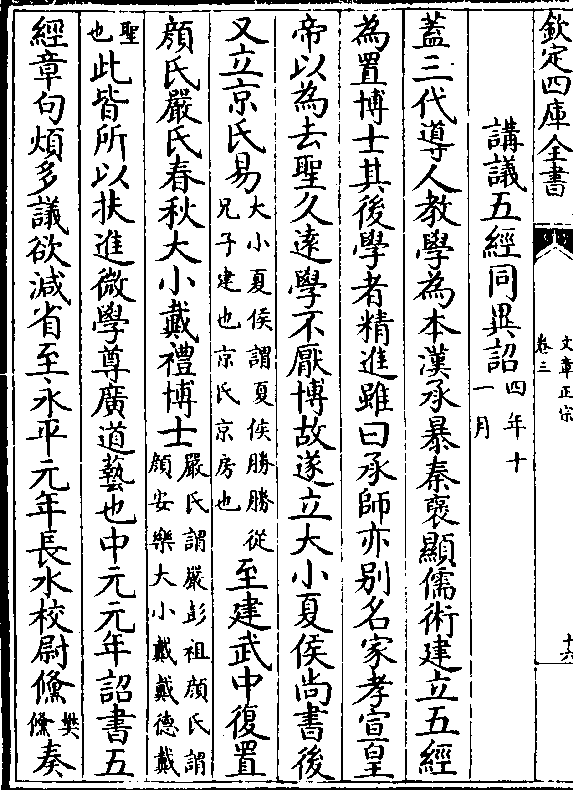 欽定四庫全書
文章正宗
卷三
十六
講議五經同異詔四年十
一月
蓋三代導人教學為本漢承暴秦襃顯儒術建立五經
為置博士其後學者精進雖曰承師亦别名家孝宣皇
帝以為去聖久逺學不厭博故遂立大小夏侯尚書後
又立京氏易大小夏侯謂夏侯勝勝從
兄子建也京氏京房也至建武中復置
顔氏嚴氏春秋大小戴禮博士嚴氏謂嚴彭祖顔氏謂
顔安樂大小戴戴德戴
聖
也此皆所以扶進微學尊廣道藝也中元元年詔書五
經章句煩多議欲減省至永平元年長水校尉儵樊
儵奏